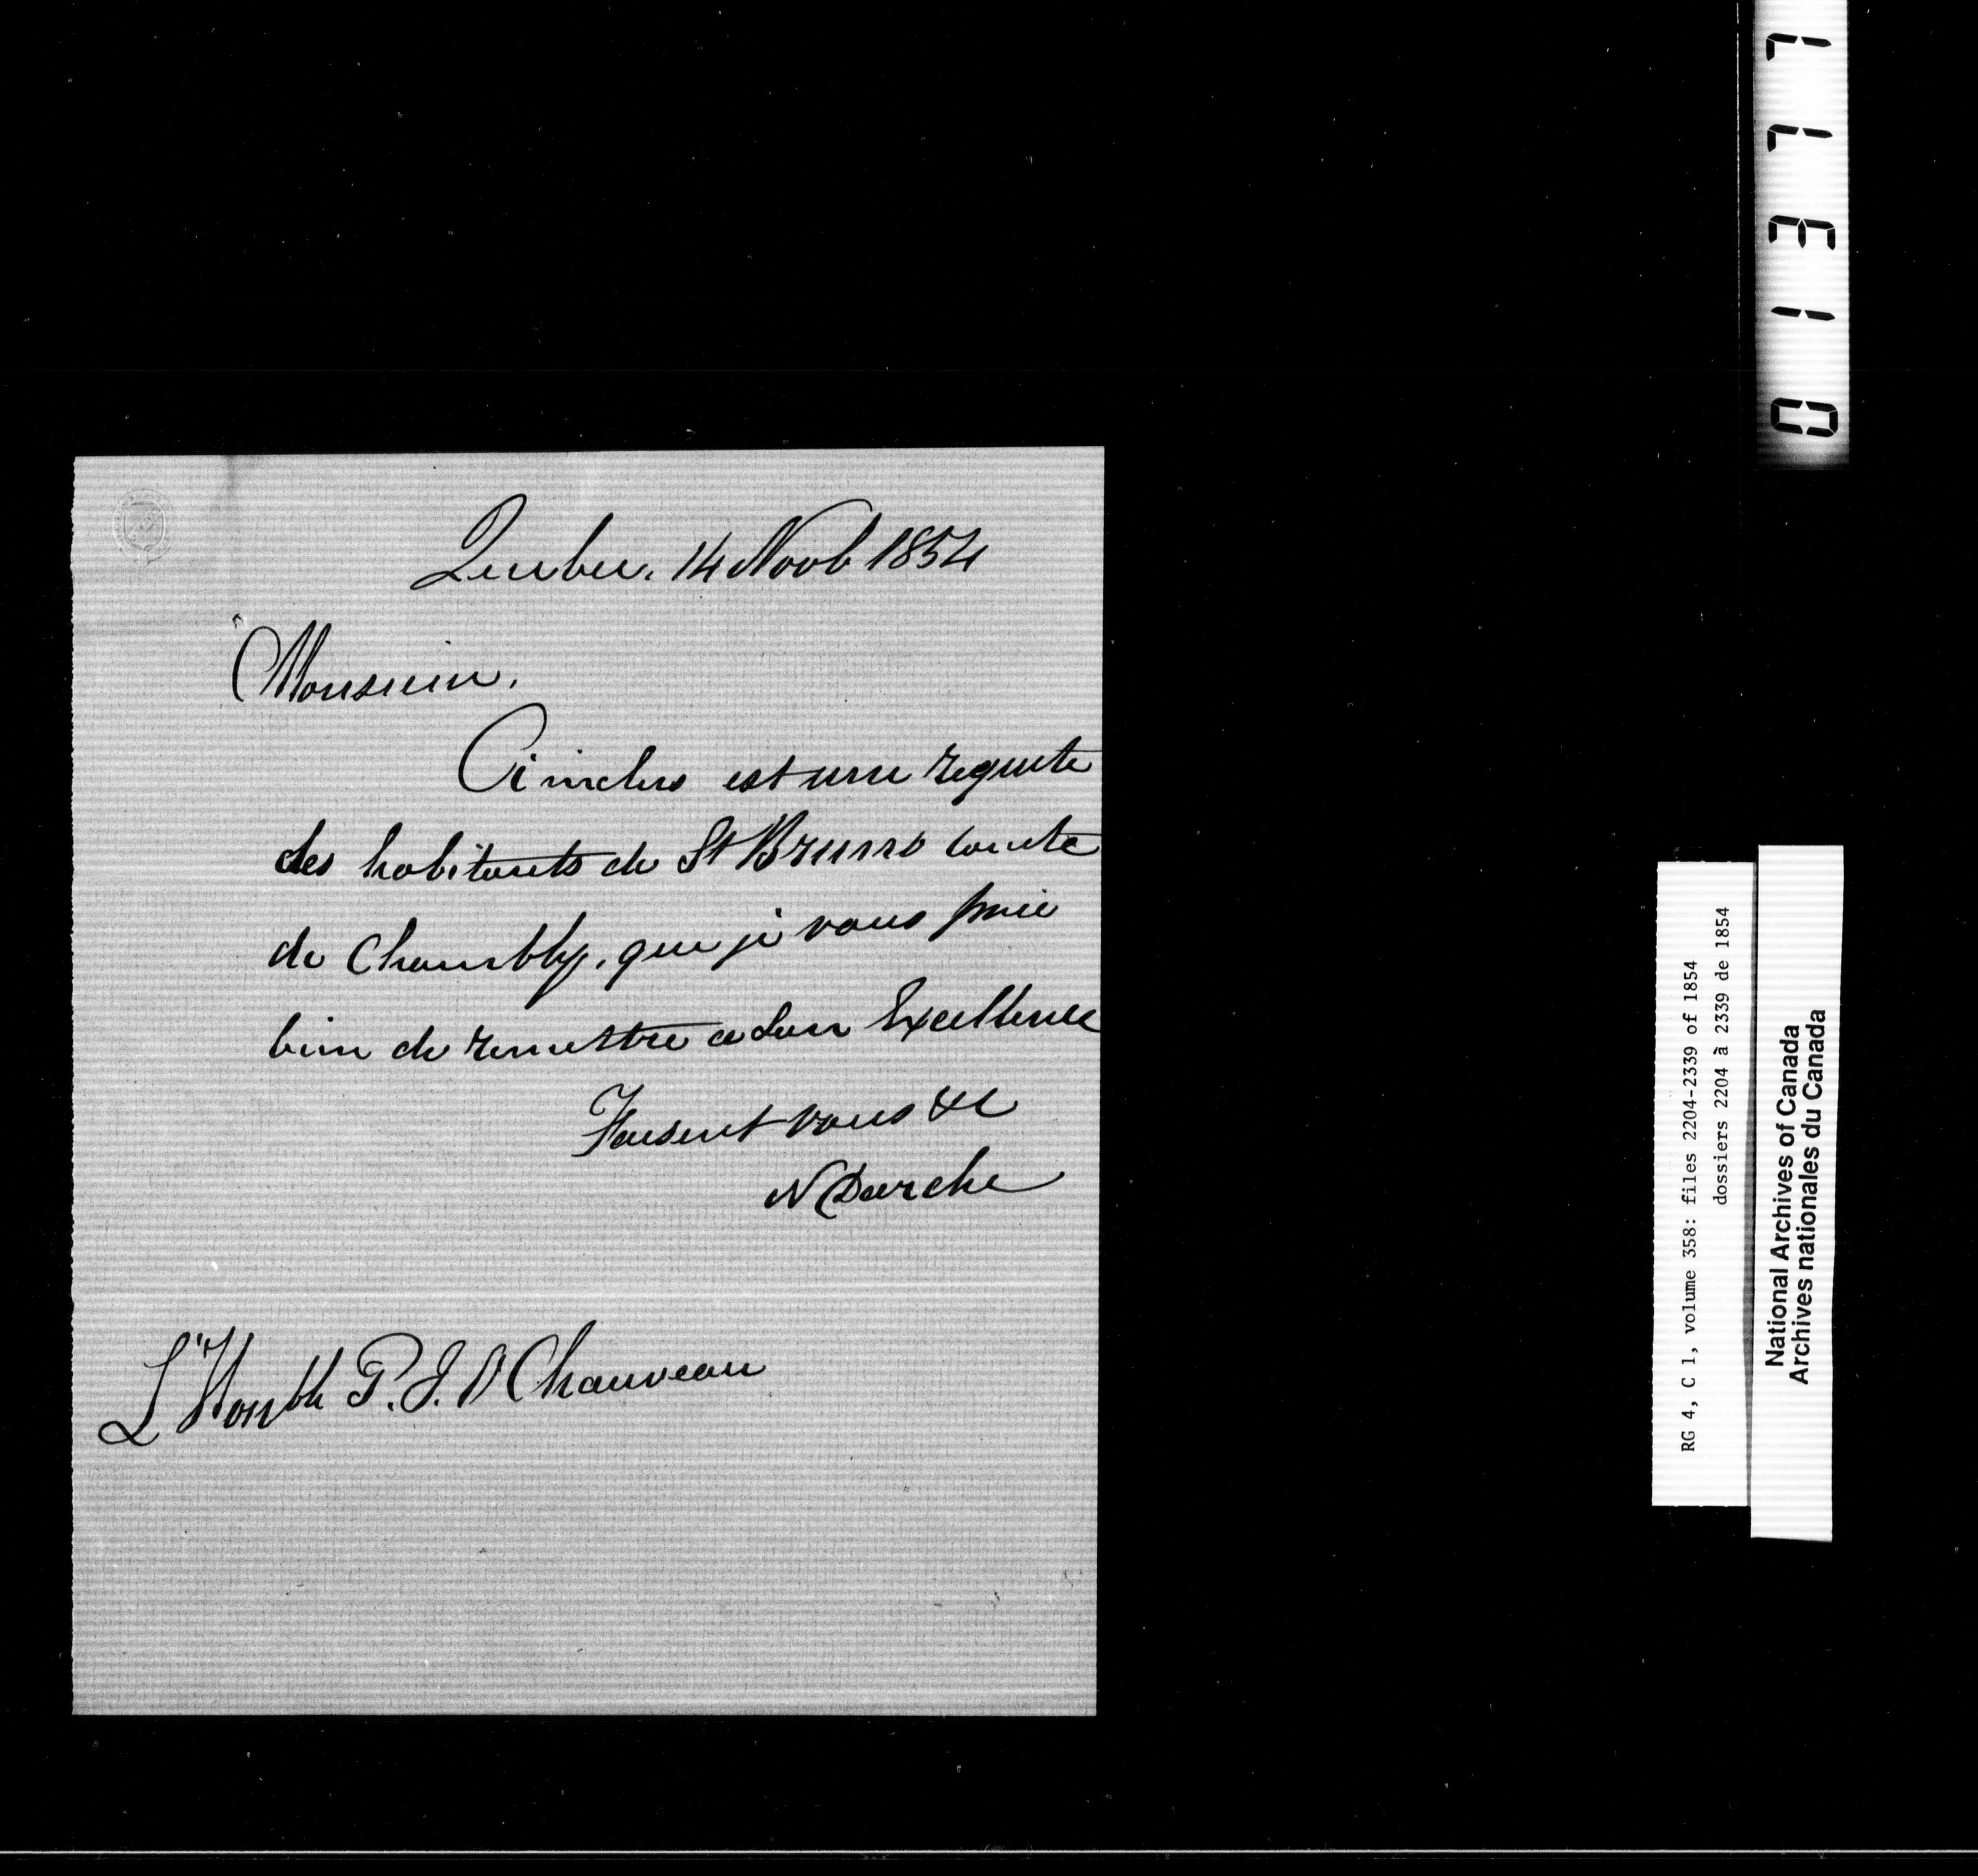 Quebec. 14 Novb 1854
Monsieur.
Ci inclus est une requete
des habitants de St Bruno comté
de Chambly, que je vous prie
bien de remettre a Son Excellence
Faisent vous &c
N Darche
L'Honble P. J. O Chauveau
01377
RG 4, C 1, volume 358: files 2204-2339 of 1854
dossiers 2204 à 2339 de 1854
National Archives of Canada
Archives nationales du Canada